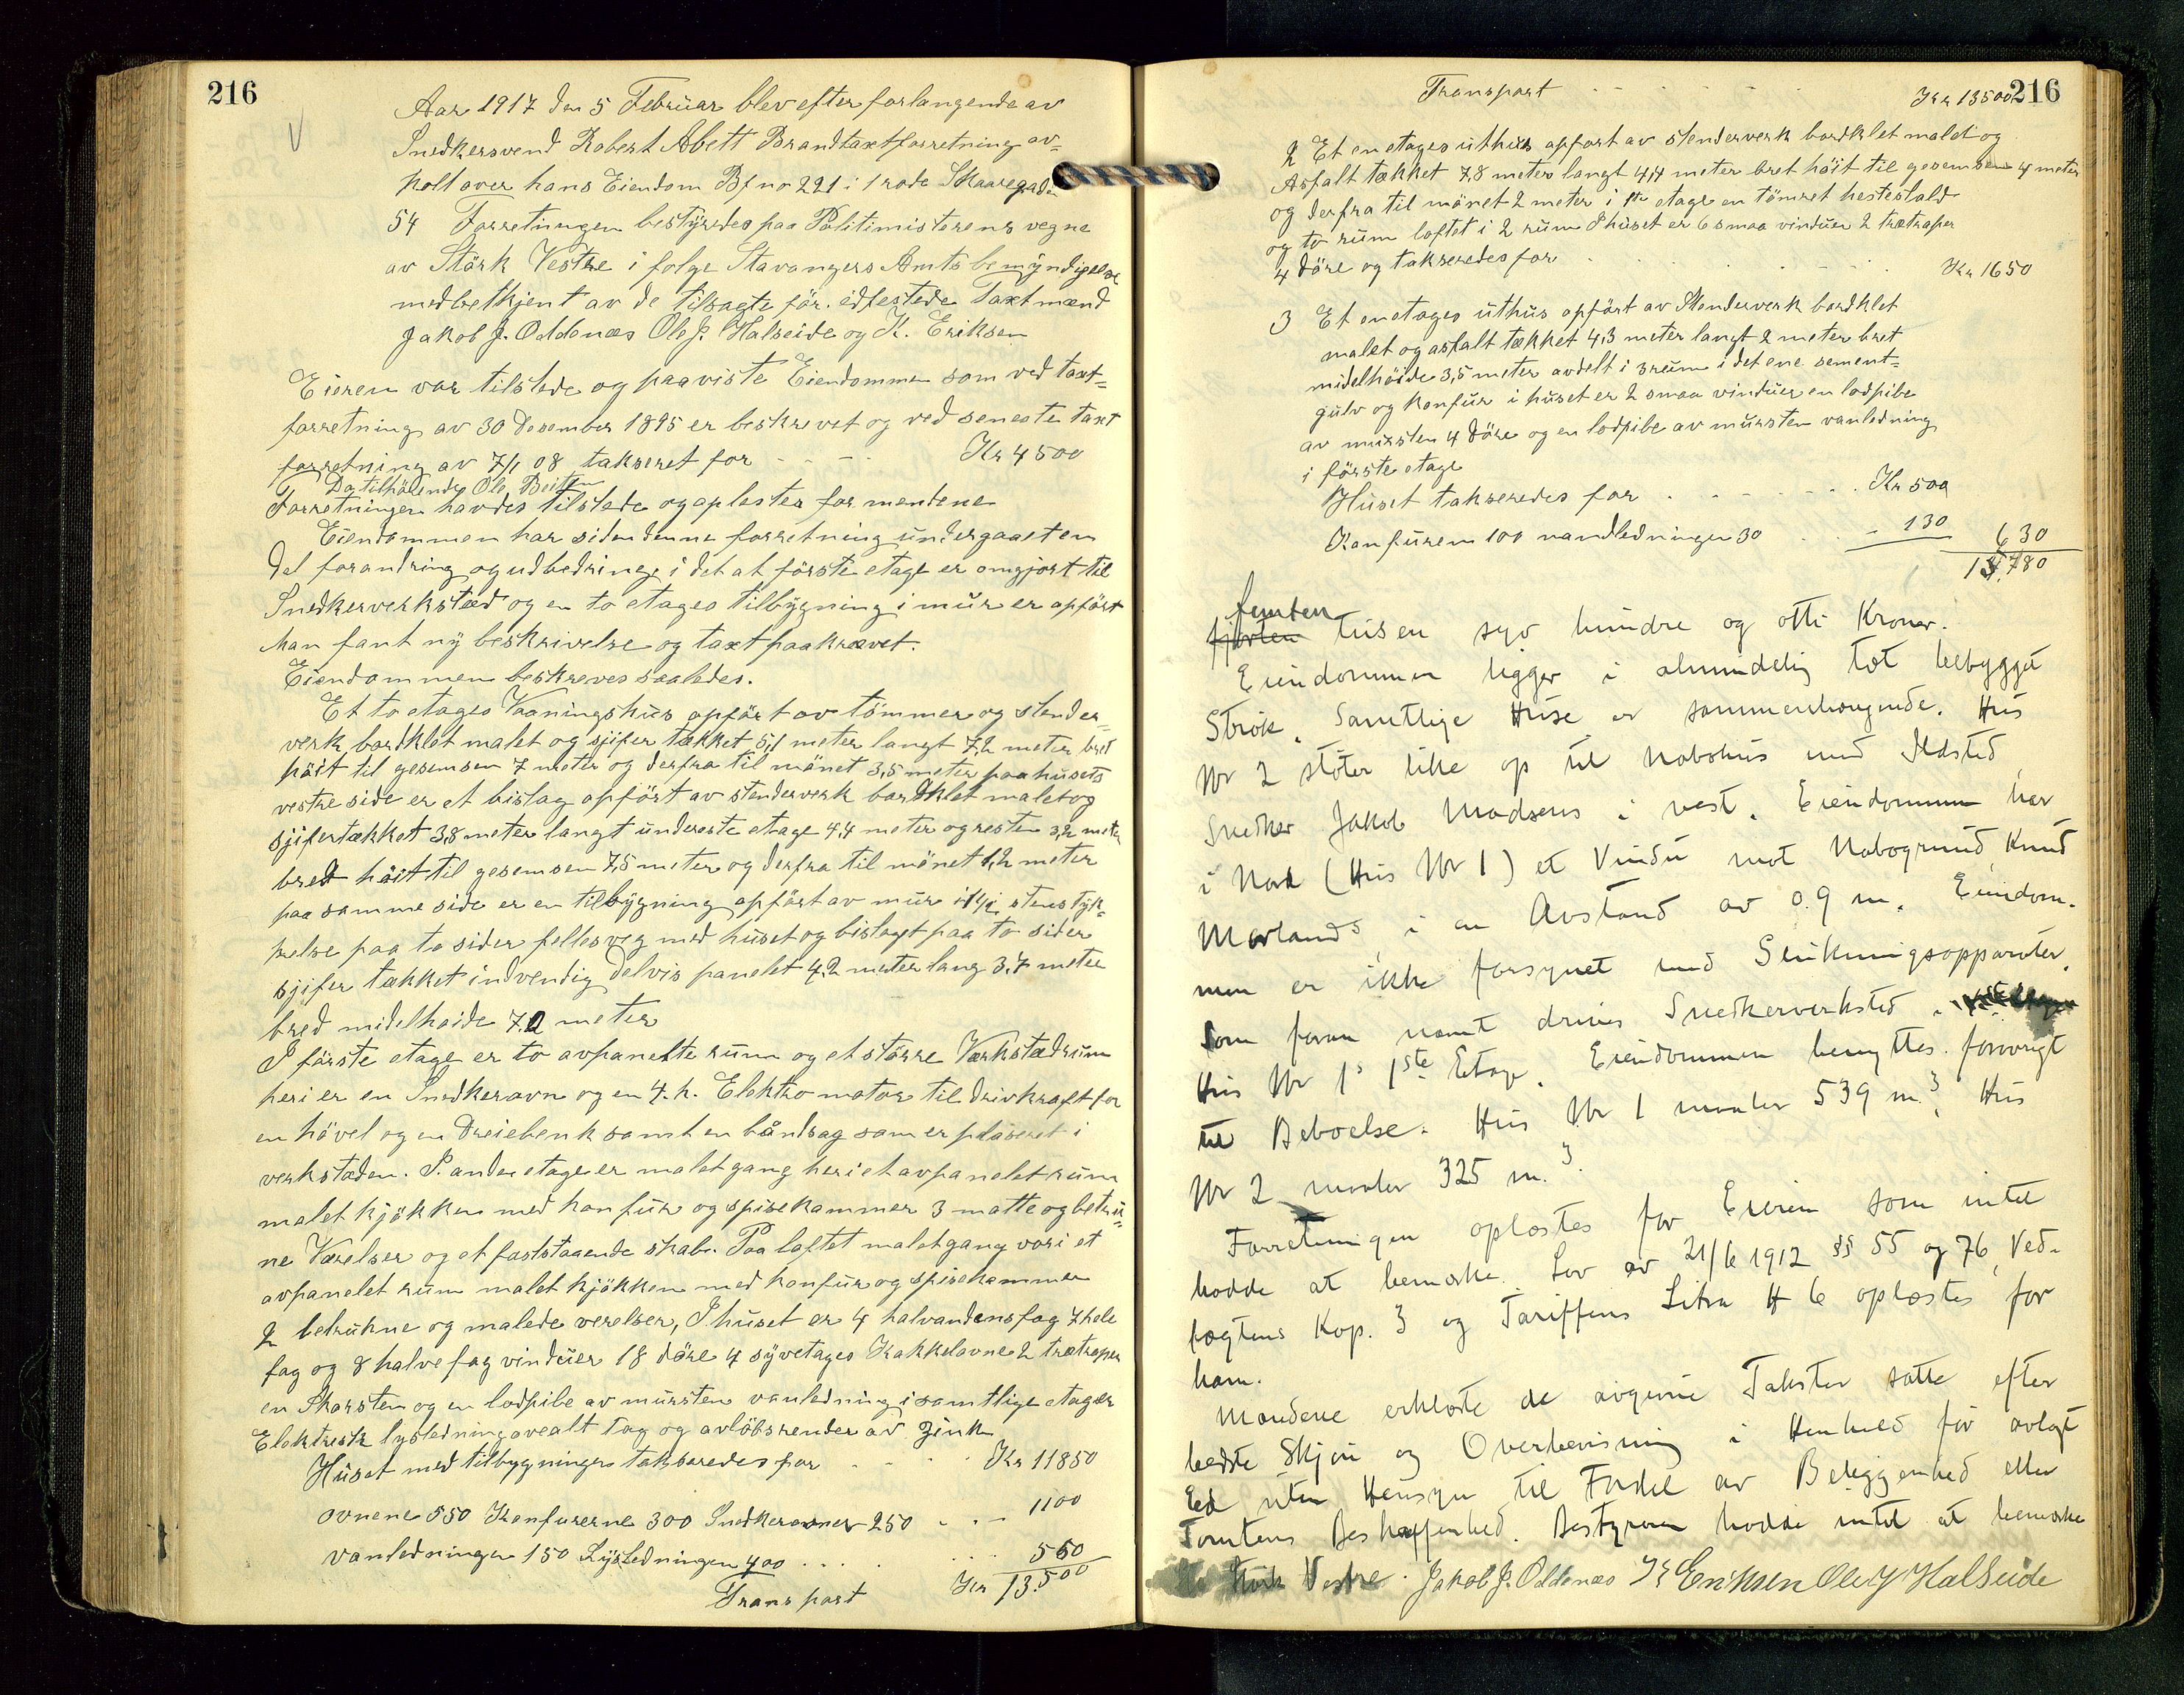 216
Aar 1917 den 5 Februar blev efter forlangende av
Snedkersvend Robert Abett Brandtaxtforretning av-
holt over hans Eiendom Bf no 221 i 1 rode Skaaregade
54 Forretningen bestyredes paa Politimisterens vegne
av Stärk Vestre i følge Stavangers Amts bemyndigelse
medbetkjent av de tilsagte før edfestede Taxtmænd
Jakob J. Oddenæs Ole J. Halseide og K. Eriksen
Eieren var tilstede og paaviste Eiendommen som ved taxt-
forretning av 30 Desember 1895 er beskrevet og ved seneste taxt
forretning av 7/1 08 takseret for - - - Kr 4500
Da tilhørende Ole
Forretningen havdes tilstede og oplestes for mendene
Eiendommen har siden denne forretning undergaaet en
del forandring og udbedringe i det at første etage er omgjort til
Snedkerverksted og en to etages tilbygning i mur er opført
Man fant ny beskrivelse og taxt paakrævet.
Eiendommen beskreves saaledes.
Et to etages Vaaningshus opført av tömmer og stender-
verk bordklet malet og sjifer tækket 5,1 meter langt 7,2 meter bret
höit til gesemsen 7 meter og derfra til mönet 3,5 meter paa husets
vestre side er et bislag opfört av stenderverk bordklet malet og
sjifertækket 3,8 meter langt underste etage 4,4 meter og resten 3,2 meter
bred höit til gesemsen 7,5 meter og derfra til mönet 1,2 meter
paa samme side er en tilbygning opfört av mur i 1 1/2 stens tyk-
kelse paa to sider felles veg med huset og bislaget paa to sider
sjifer tækket indvendig delvis panelet 4,2 meter lang 3,7 meter
bred midelhøide 7,2 meter
I förste etage er to avpanelte rum og et större Værkstædrum
heri er en Snedkerovn og en 4. h. Elektromotor til drivkraft for
en hövel og en Dreiebenk samt en båndsag som er plaseret i
verkstæden. I anden etage er malet gang heri et avpanelet rum
malet kjökken med komfur og spisekammer 3 matte og betru-
ne Værelser og et faststaaende skab. Paa loftet malet gang vori et
avpanelet rum malet kjökken med komfur og spisekammer
2 betrukne og malede verelser, I huset er 4 halvandensfag 7 hele
fag og 8 halve fag vinduer 18 döre 4 syvetages Kakkelovne 2 trætraper
en Skorsten og en lodpibe av mursten vanledning i samtlige etager
Elektresk lysledning ovealt Tag og avlöbsrender av zink
Huset med tilbygninger takseredes for - - - Kr 11850
ovnene 550 Komfurerne 300 Snedkerovner 250 - - - 1100
vanledningen 150 Lysledningen 400 . . . . 550
Transport Kr 13.500
216
Transport - - - - - Kr 13500
2 Et en etages uthus opfört av stenderverk bordklet malet og
Asfalt tækket 7,8 meter langt 4,4 meter bret höit til gesemsen 4 meter
og derfra til mönet 2 meter i 1ste etage en tömret hestestald
og to rum loftet i 2 rum I huset er 6 smaa vinduer 2 trætraper
4 döre og takseredes for - - - - Kr 1650
3 Et en etages uthus opfört av Stenderverk bordklet
malet og asfalt tækket 4,3 meter langt 2 meter bret
midelhöide 3,5 meter avdelt i 3 rum i det ene sement-
gulv og Komfur i huset er 2 smaa vinduer en lodpibe
av mursten 4 döre og en lodpibe av mursten vanledning
i förste etage
Huset takseredes for . - - - - . Kr 500
Komfuren 100 vandledningen 30 . . - 130 630
15,780
femten
fjorten tusen syv hundre og otti Kroner.
Eiendommen ligger i almindelig tæt bebygget
Strøk. Samtlige Huse er sammenhængende. Hus
Nr 2 støter like op til Nabohus med Ildsted,
Snedker Jakob Madsens i vest. Eiendommen har
i Nord (Hus Nr 1) et Vindu mot Nabogrund, Knud
Mørlands, i en Avstand av 0.9 m. Eiendom-
men er ikke forsynet med Slukningsapparater.
Som foran nævnt drives Snedkerverksted i
Hus Nr 1s 1ste Etage. Eiendommen benyttes forøvrigt
til Beboelse. Hus Nr 1 maaler 539 m.3, Hus
Nr 2 maaler 325 m.3.
Forretningen oplæstes for Eieren som intet
hadde at bemærke. Lov av 21/6 1912 §§ 55 og 76, Ved-
tægtens Kap. 3 og Tariffens Litra H 6 oplæstes for
ham.
Mændene erklærte de avgivne Takster satte efter
bedste Skjøn og Overbevisning i Henhold før avlagt
Ed uten Hensyn til Fordel av Beliggenhed eller
Tomtens Beskaffenhed. Bestyreren hadde intet at bemærke
Stärk Vestre. Jakob J. Oddenæs K Eriksen Ole J Halseide